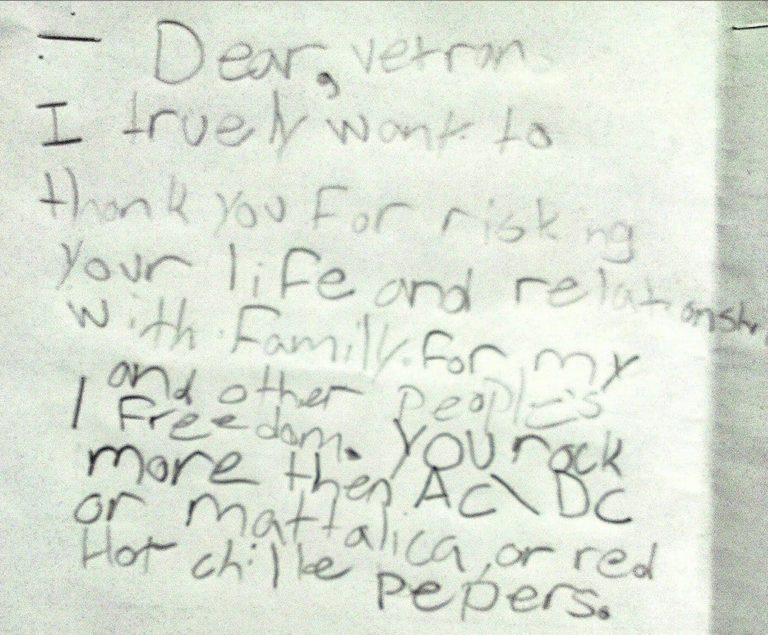 Dear, vetran
I truely want to
thank you For risking
your life and relationshi
with Family. For my
and other people's
Freedom. You rock
more then AC\DC
or mattalica, or red
Hot chille pepers.